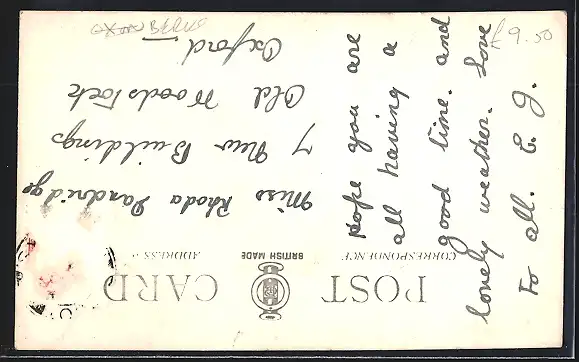 POST CARD
CORRESPONDENCE
BRITISH MADE
ADDRESS
Hope you are
all having a
good time. and
lovely weather. Love
to all. E. J.
Miss Rhoda
7 New Buildings
Old Woodstock
Oxford
BERKS
£9.50